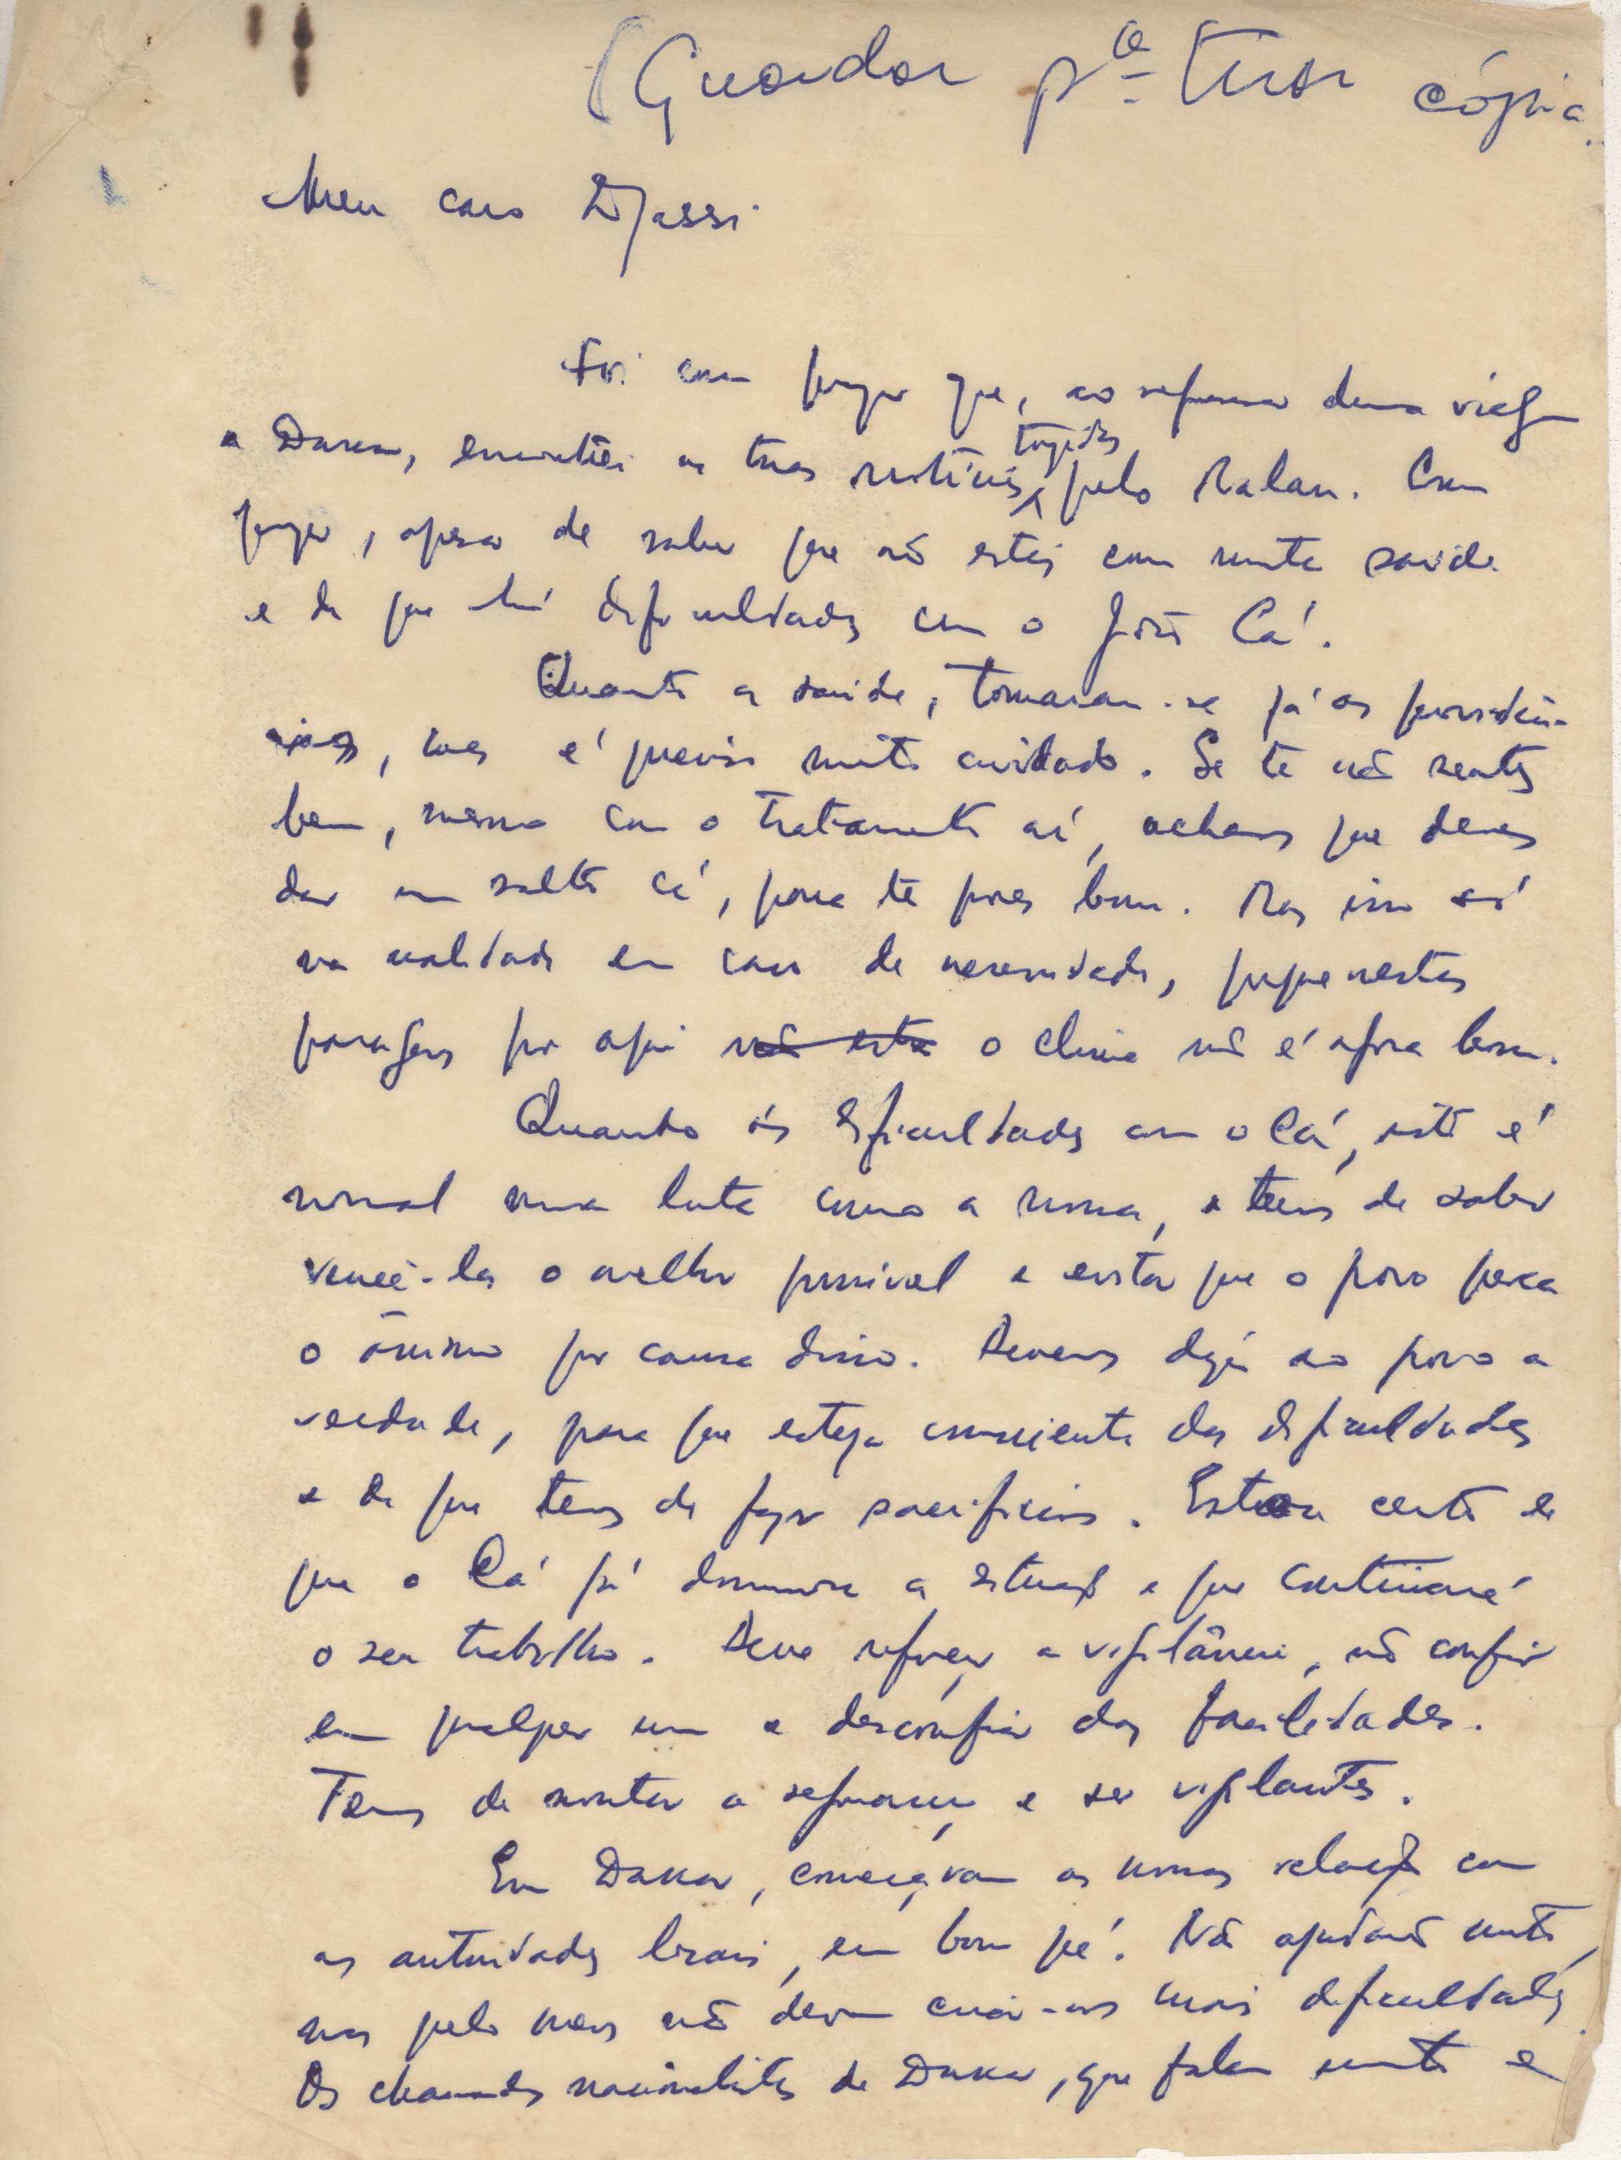 (Guardar pª tirar cópia.
Meu caro Djassi
Foi com prazer que, ao regressar duma viagem
a Dakar, encontrei as tuas notícias trazidas pelo Malan. Com
prazer, apesar de saber que não estás com muita saúde
e de que há dificuldades com o João Cá.
Quanto a saúde, tomaram-se já as providên-
cias, mas é preciso muito cuidado. Se te não sentes
bem, mesmo com o tratamento aí, achamos que deves
dar um salto cá, para te pores bom. Mas isso só
na realidade em caso de necessidade, porque nestas
paragens por aqui não está o clima não é agora bom.
Quanto às dificuldades com o Cá, isto é
normal numa luta como a nossa, e temos de saber
vencê-las o melhor possível e evitar que o povo perca
o ânimo por causa disso. Devemos dizer ao povo a
verdade, para que esteja consciente das dificuldades
e de que temos de fazer sacrifícios. Estou certo de
que o Cá já domina a situação e que continuará
o seu trabalho. Deve reforçar a vigilância, não confiar
em qualquer um e desconfiar das facilidades.
Temos de montar a segurança e ser vigilantes.
Em Dakar, começaram as nossas relações com
as autoridades locais, em bom pé. Não ajudarão muito,
mas pelo menos não devem criar-nos mais dificuldades.
Os chamados nacionalistas de Dakar, que falam muito e